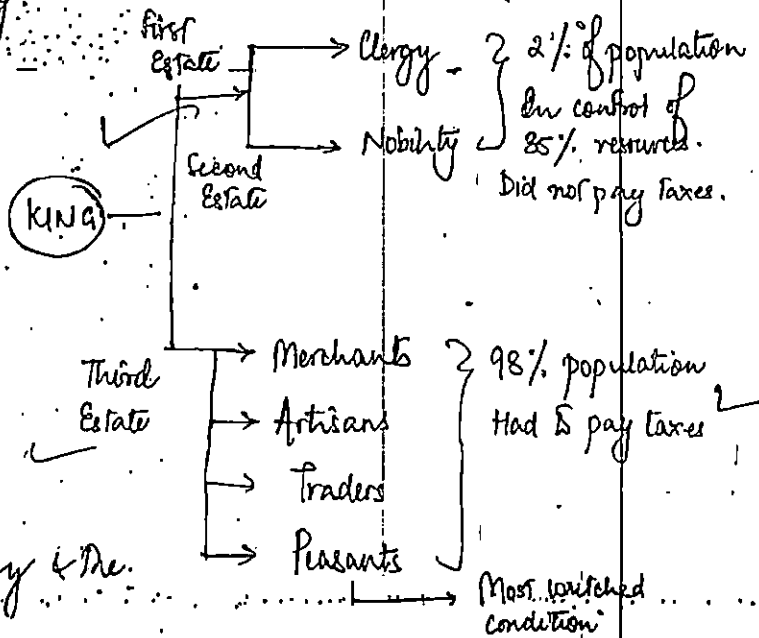 First
Estate
Clergy
2% of population
In control of
85% resources.
Did not pay taxes.
Nobility
Second
Estate
KING
Third
Estate
Merchants
Artisans
Traders
Peasants
98% population
Had to pay taxes
Most writched
condition
y & the.